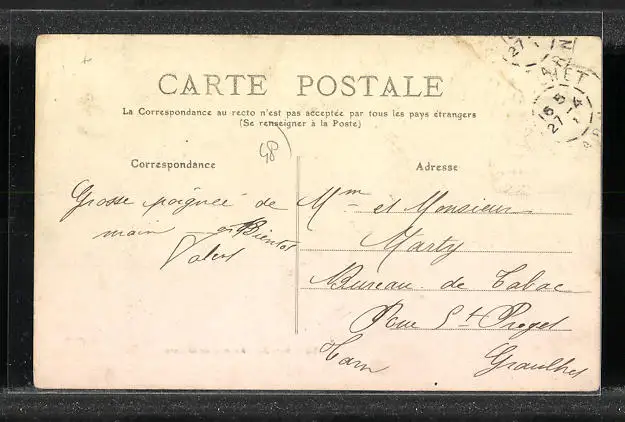 CARTE POSTALE
La Correspondance au recto n'est pas acceptée par tous les pays étrangers
(Se renseigner à la Poste)
48
Correspondance
Adresse
Grosse poignée de
main et Bientot
Valent
Mme et Monsieur
Marty
Bureau de Tabac
Rue St Proget
Tarn Graulhet